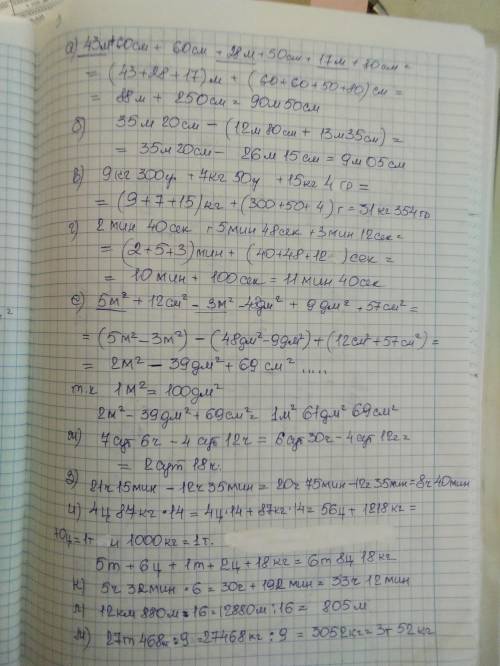 а) 43м+60см + 60см + 28м+50см + 17м + 80см =
= (43+28+17)м + (60+60+50+80)см =
= 88м + 250см = 90м 50см
б) 35м 20см - (12м 80см + 13м 35см) =
= 35м 20см - 26м 15см = 9м 05см
в) 9кг 300гр + 7кг 50г + 15кг 4 гр =
= (9+7+15)кг + (300+50+4)г = 31кг 354гр
г) 2 мин 40сек + 5мин 48сек +3мин 12сек =
= (2+5+3)мин + (40+48+12)сек =
= 10мин + 100сек = 11мин 40сек
е) 5м² + 12см² - 3м² - 48дм² + 9дм² + 57см² =
= (5м² - 3м²) - (48дм² - 9дм²) + (12см² + 57см²) =
= 2м² - 39дм² + 69 см² .....
т.к 1м² = 100дм²
2м² - 39дм² + 69см² = 1м² 61дм² 69см²
ж) 7сут 6ч - 4 сут 12ч = 6сут 30ч - 4сут 12ч =
= 2сут 18ч.
з) 21ч 15мин - 12ч 35мин = 20ч 75мин - 12ч 35мин = 8ч 40мин
и) 4ц 87кг · 14 = 4ц · 14 + 87кг · 14 = 56ц + 1218кг =
10ц = 1т и 1000кг = 1т.
5т + 6ц + 1т + 2ц + 18кг = 6т 8ц 18кг
к) 5ч 32мин · 6 = 30ч + 192мин = 33ч 12мин
л) 12км 880м : 16 = 12880м : 16 = 805м
м) 27т 468к : 9 = 27468кг : 9 = 3052кг = 3т 52кг